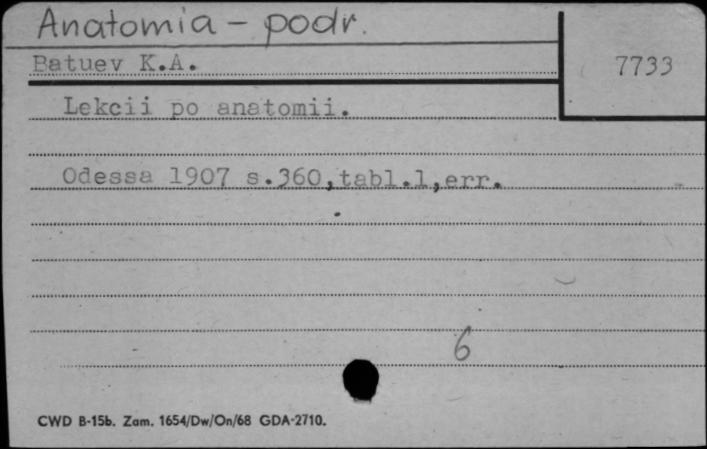 Anatomia - podr.
Batuev K.A.
7733
Lekcii po anatomii.
Odessa 1907 s.360,tabl.1,err.
6
CWD B-15b. Zam. 1654/Dw/On/68 GDA-2710.